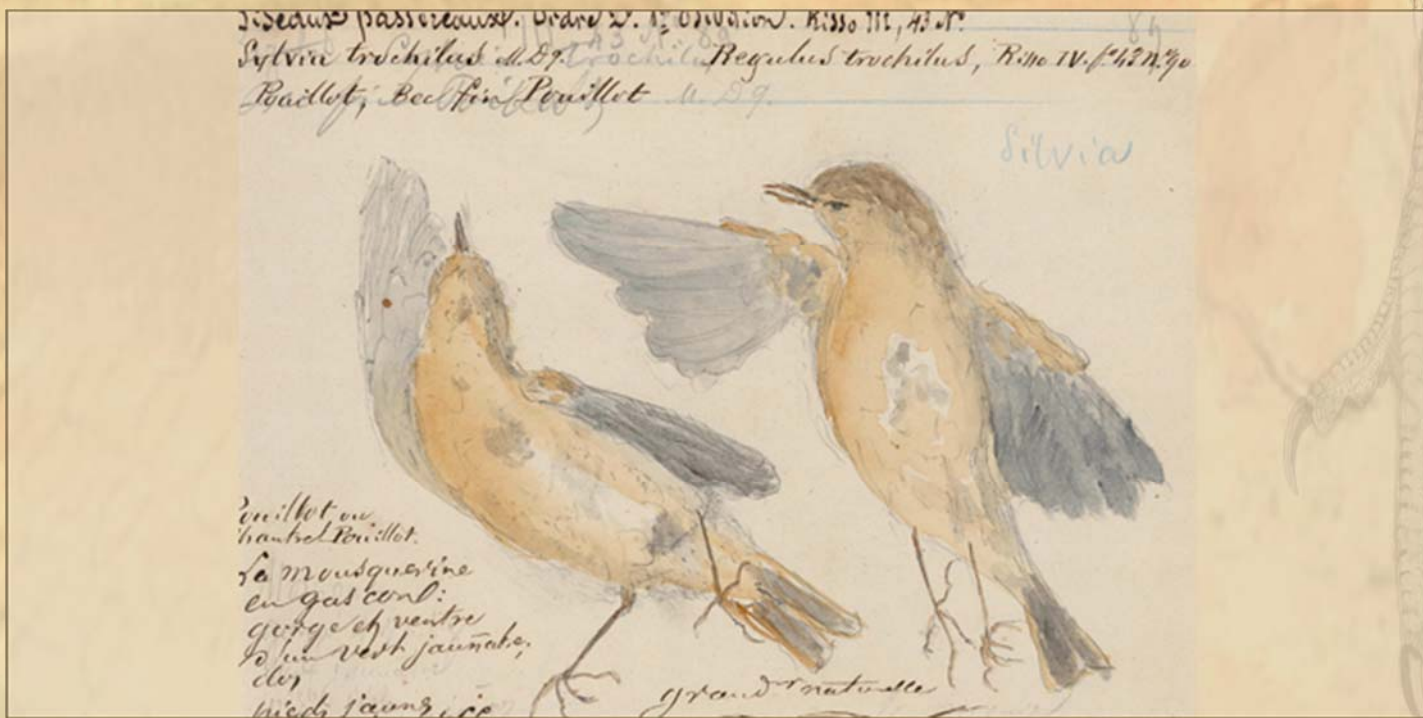 Oiseaux passereaux. Ordre 2. 1re Division. Risso III, 43 No.
84
Sylvia trochilus M. Dg. Regulus trochilus, Risso IV. fo 43 No. 90
Pouillot, Bec fin Pouillot M. Dg.
Silvia
Pouillot ou
Chantre Pouillot.
La mousquerine
en gascon:
gorge et ventre
d'un vert jaunâtre,
dos
pieds jaunes,
grandr naturelle